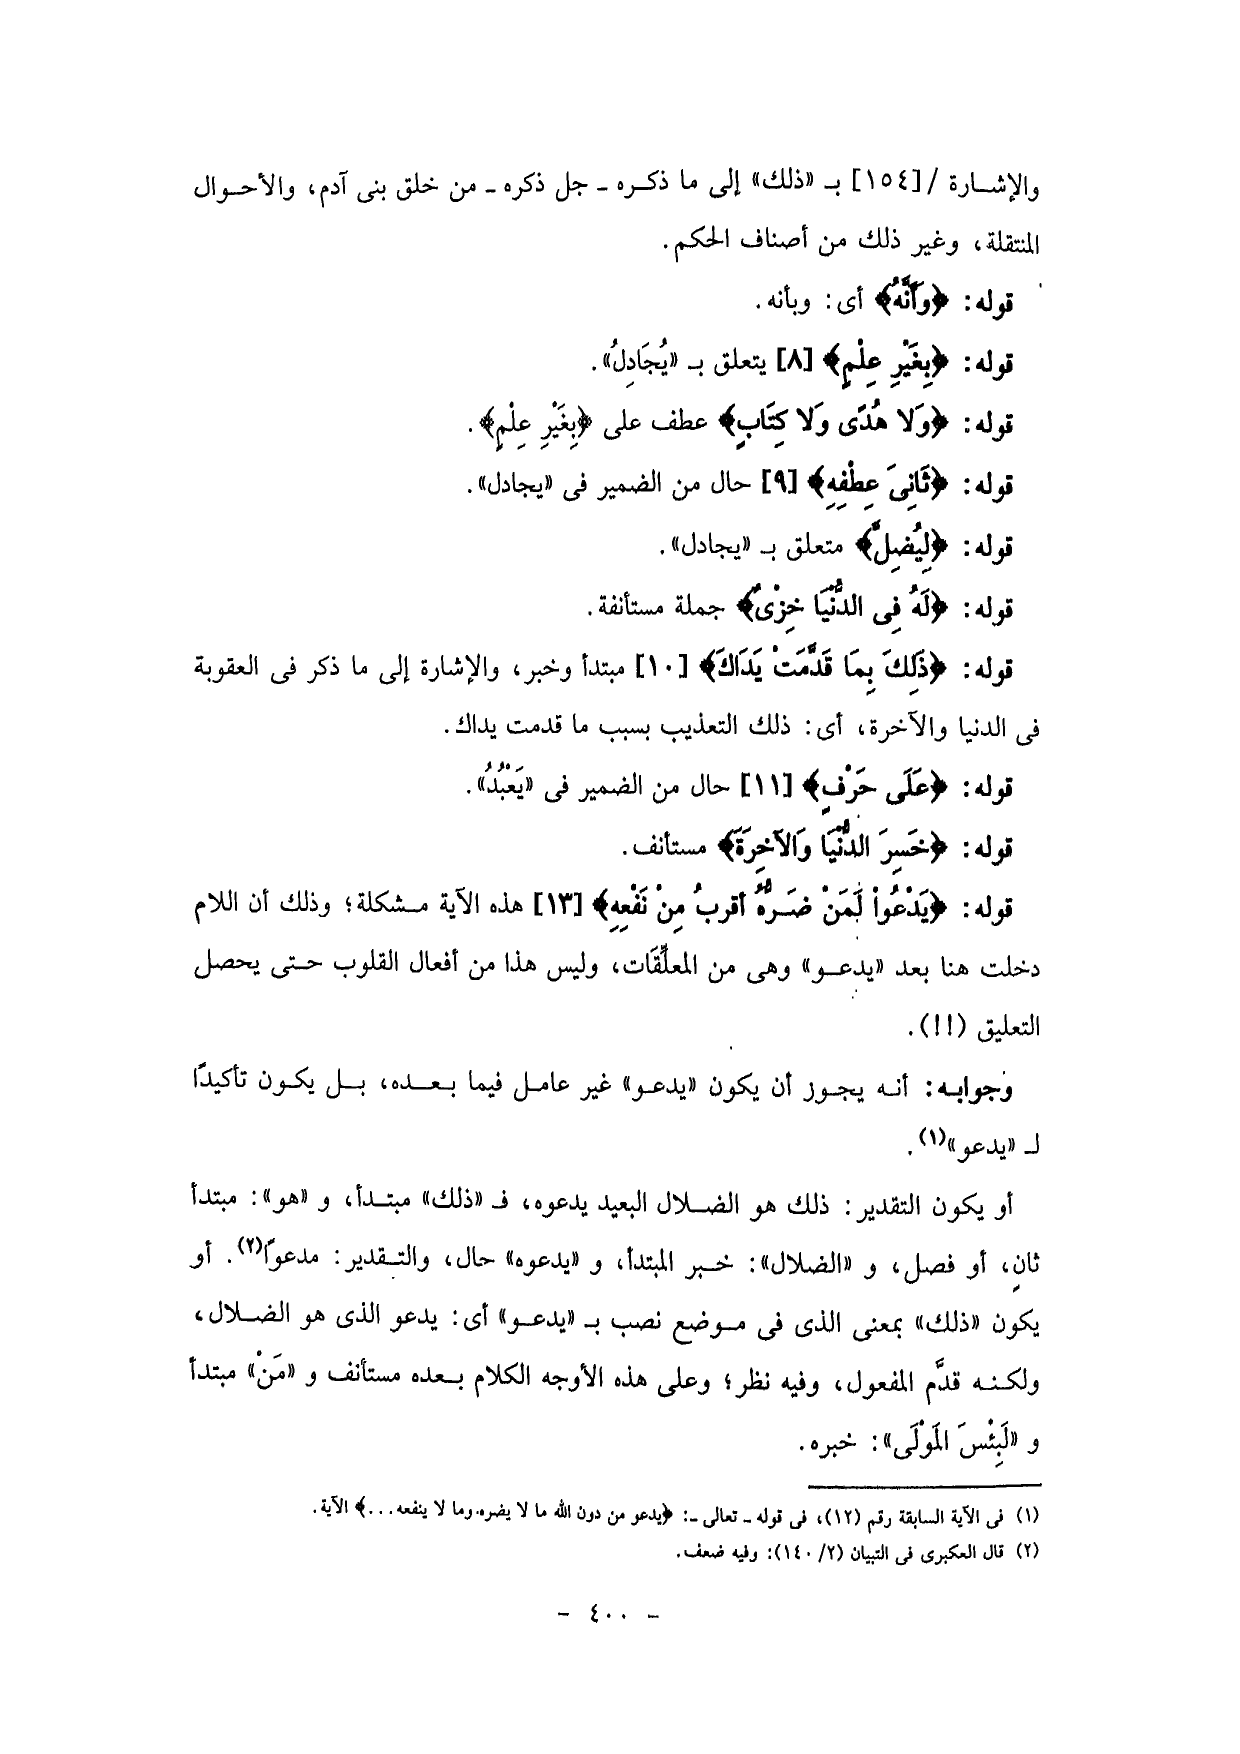 والإشارة /[١٥٤] بـ «ذلك» إلى ما ذكره ـ جل ذكره ـ من خلق بنى آدم، والأحوال
المنتقلة، وغير ذلك من أصناف الحكم.
قوله: ﴿وَأَنَّهُ﴾ أى: وبأنه.
قوله: ﴿بِغَيْرِ عِلْمٍ﴾ [٨] يتعلق بـ «يُجَادِلُ».
قوله: ﴿وَلا هُدًى وَلا كِتَابٍ﴾ عطف على ﴿بِغَيْرِ عِلْمٍ﴾.
قوله: ﴿ثَانِىَ عِطْفِهِ﴾ [٩] حال من الضمير فى «يجادل».
قوله: ﴿لِيُضِلَّ﴾ متعلق بـ «يجادل».
قوله: ﴿لَهُ فِى الدُّنْيَا خِزْىٌ﴾ جملة مستأنفة.
قوله: ﴿ذَلِكَ بِمَا قَدَّمَتْ يَدَاكَ﴾ [١٠] مبتدأ وخبر، والإشارة إلى ما ذكر فى العقوبة
فى الدنيا والآخرة، أى: ذلك التعذيب بسبب ما قدمت يداك.
قوله: ﴿عَلَى حَرْفٍ﴾ [١١] حال من الضمير فى «يَعْبُدُ».
قوله: ﴿خَسِرَ الدُّنْيَا وَالآخِرَةَ﴾ مستأنف.
قوله: ﴿يَدْعُواْ لَمَنْ ضَرُّهُ أقربُ مِنْ نَفْعِهِ﴾ [١٣] هذه الآية مشكلة؛ وذلك أن اللام
دخلت هنا بعد «يدعو» وهى من المعلِّقَات، وليس هذا من أفعال القلوب حتى يحصل
التعليق (!!).
وجوابه: أنه يجوز أن يكون «يدعو» غير عامل فيما بعده، بل يكون تأكيدًا
لـ «يدعو»(١).
أو يكون التقدير: ذلك هو الضلال البعيد يدعوه، فـ «ذلك» مبتدأ، و «هو»: مبتدأ
ثانٍ، أو فصل، و «الضلال»: خبر المبتدأ، و «يدعوه» حال، والتقدير: مدعوًا(٢). أو
يكون «ذلك» بمعنى الذى فى موضع نصب بـ «يدعو» أى: يدعو الذى هو الضلال،
ولكنه قدَّم المفعول، وفيه نظر؛ وعلى هذه الأوجه الكلام بعده مستأنف و «مَنْ» مبتدأ
و «لَبِئْسَ المَوْلَى»: خبره.
(١) فى الآية السابقة رقم (١٢)، فى قوله ـ تعالى ـ: ﴿يدعو من دون الله ما لا يضره وما لا ينفعه...﴾ الآية.
(٢) قال العكبرى فى التبيان (٢/ ١٤٠): وفيه ضعف.
- ٤٠٠ -